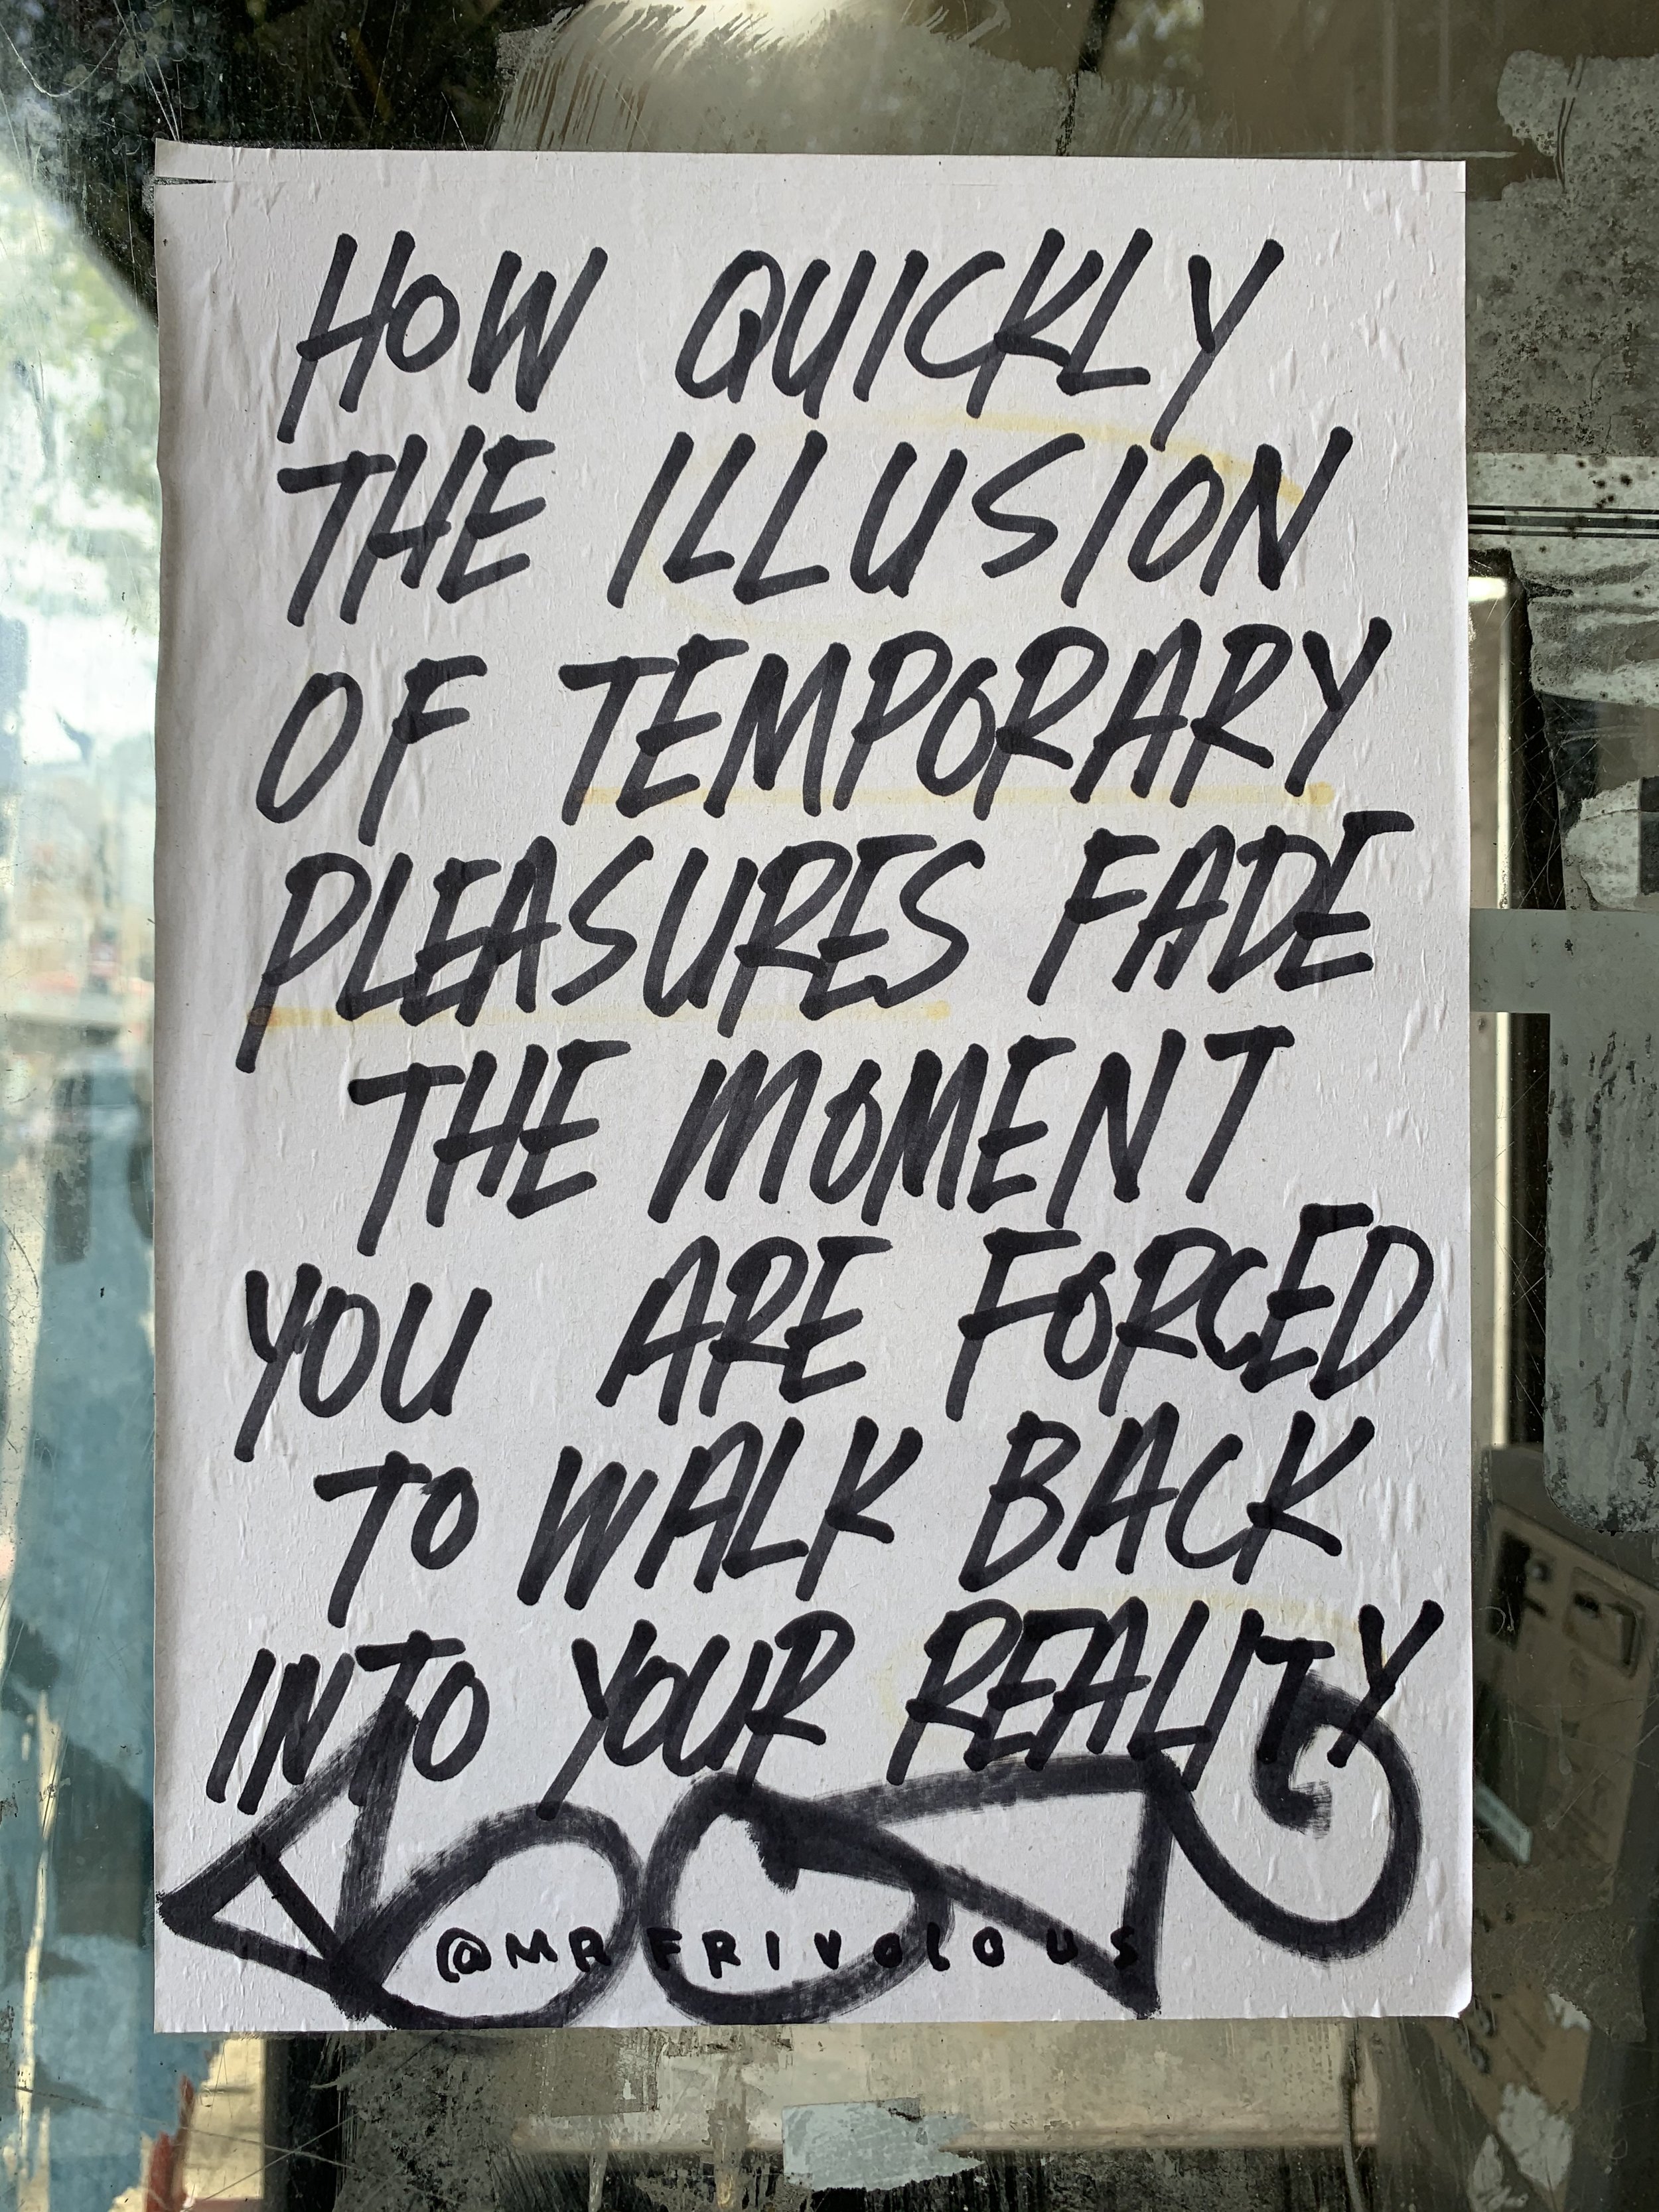 HOW QUICKLY
THE ILLUSION
OF TEMPORARY
PLEASURES FADE
THE MOMENT
YOU ARE FORCED
TO WALK BACK
INTO YOUR REALITY
@MRFRIVOLOUS